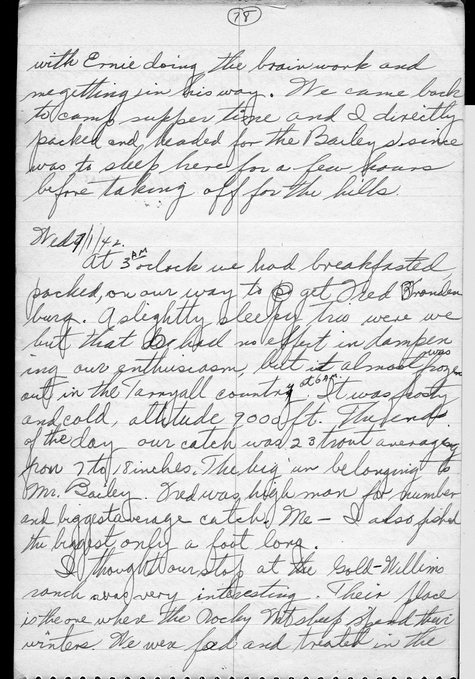 78
with Ernie doing the brain work and
me getting in his way. We came back
to camp supper time and I directly
packed and headed for the Bailey's, since
was to sleep here for a few hours
before taking off for the hills
Wed 7/1/42.
At 3 AM o'clock we had breakfasted,
packed, on our way to get Fred Branden
burg. A slightly sleepy trio were we
but that had no effect in dampen
ing our enthusiasm, but it almost was froze
out in the Tarryall country at 6 AM. It was frosty
and cold, altitude 9000 ft. The end
of the day our catch was 23 trout averaging
from 7 to 18 inches. The big 'un belonging to
Mr. Bailey. Fred was high man for number
and biggest average catch. Me - I also fished
the biggest only a foot long.
I thought our stop at the Gold-Willims
ranch was very interesting. Their place
is the one where the Rocky Mt sheep spend their
winters. We were fed and treated in the